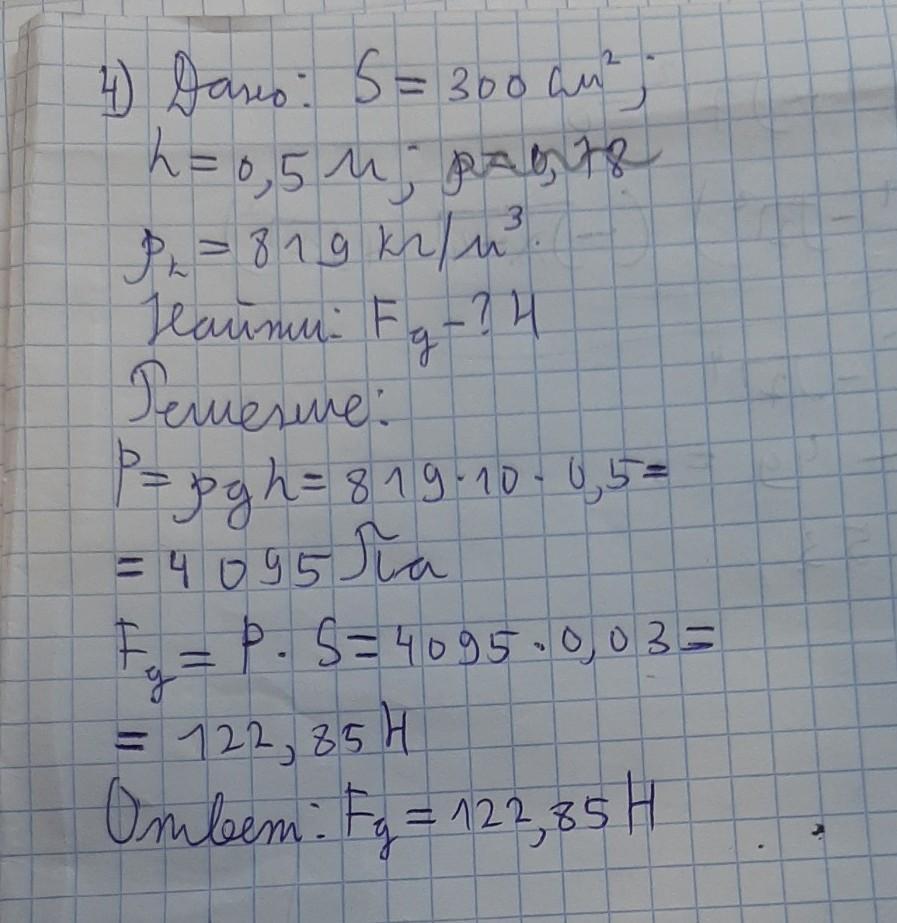 4) Дано: S = 300 см²;
h = 0,5 м;
ρк = 819 кг/м³.
Найти: Fg - ? Н
Решение:
P = ρgh = 819·10·0,5 =
= 4095 Па
Fg = P · S = 4095 · 0,03 =
= 122,85 Н
Ответ: Fg = 122,85 Н